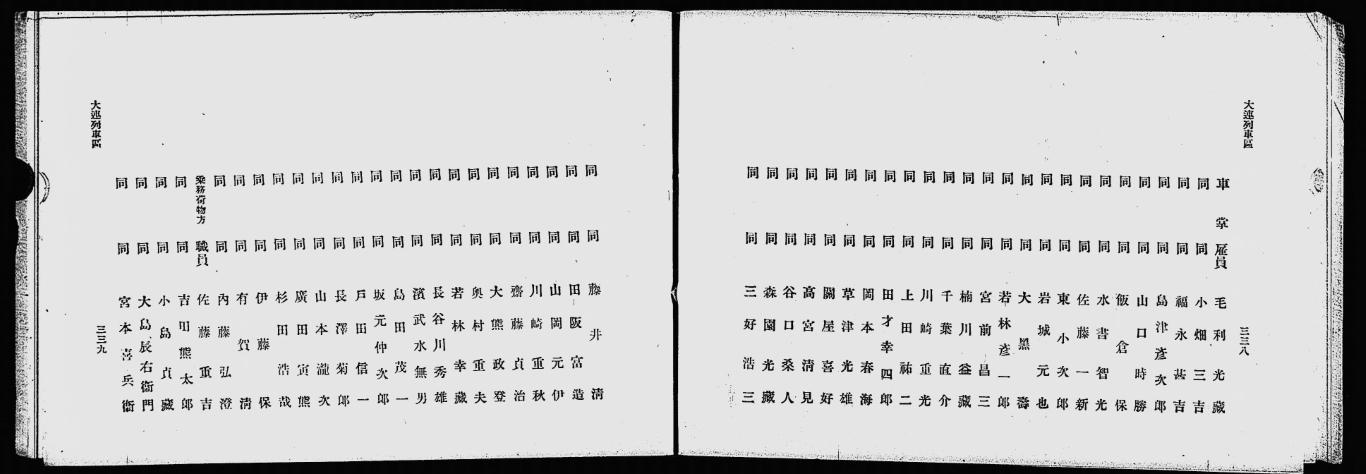 大連列車區
車掌 雇員 毛利光藏
同 同 小畑三吉
同 同 福永甚吉
同 同 島津彥次郎
同 同 山口時勝
同 同 飯倉保
同 同 水書智光
同 同 佐藤一新
同 同 東小次郎
同 同 岩城元也
同 同 大黑壽
同 同 若林彥一郎
同 同 宮前昌三
同 同 楠川益藏
同 同 千葉直介
同 同 川崎重光
同 同 上田祐二
同 同 田才幸四郎
同 同 岡本春海
同 同 草津光雄
同 同 關屋喜好
同 同 高宮淸見
同 同 谷口桑人
同 同 森園光藏
同 同 三好浩三
三三八
同 同 藤井淸
同 同 田阪富造
同 同 山岡元伊
同 同 川崎重秋
同 同 齋藤貞治
同 同 大熊政登
同 同 奧村重夫
同 同 若林幸藏
同 同 長谷川秀雄
同 同 濱武水無男
同 同 島田茂一
同 同 坂元仲次郎
同 同 戶田信一
同 同 長澤菊郎
同 同 山本瀧次
同 同 廣田寅熊
同 同 杉田浩哉
同 同 伊藤保
同 同 有賀淸
同 同 內藤弘澄
乘務荷物方 職員 佐藤重吉
同 同 吉田熊太郎
同 同 小島貞藏
同 同 大島辰右衞門
同 同 宮本喜兵衞
大連列車區
三三九